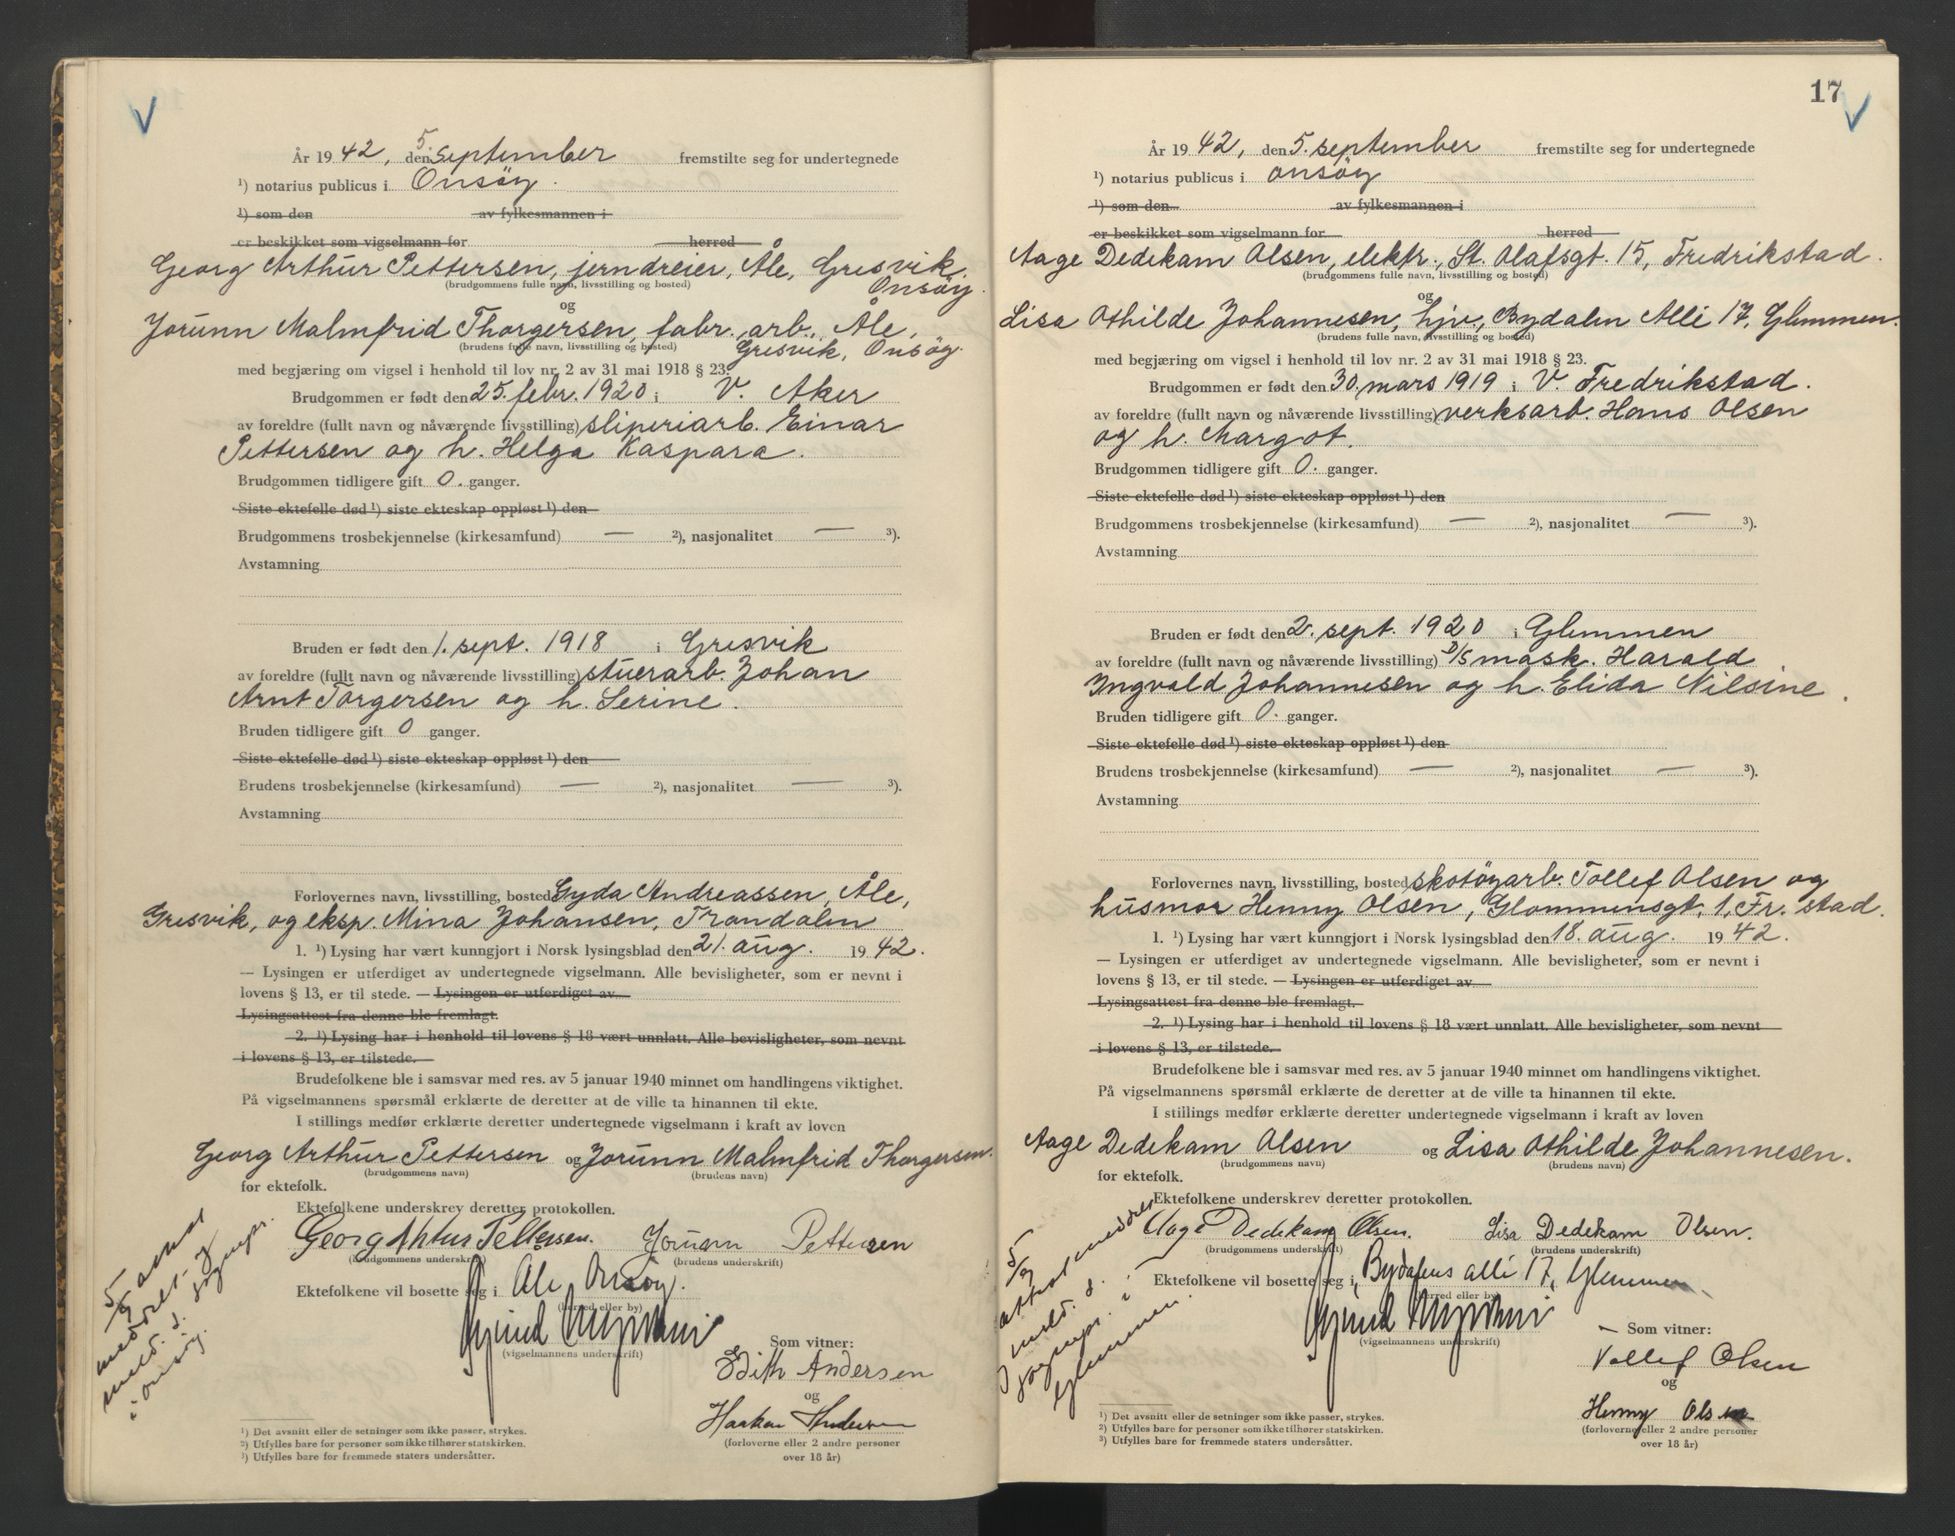 År 19 42, den 5. september fremstilte seg for undertegnede
¹) notarius publicus i Onsöy.
¹) som den av fylkesmannen i
er beskikket som vigselmann for herred
Georg Arthur Pettersen, jerndreier, Åle, Gresvik,
Onsöy.
(brudgommens fulle navn, livsstilling og bosted)
og
Jorunn Malmfrid Thorgersen, fabr. arb., Åle,
(brudens fulle navn, livsstilling og bosted) Gresvik, Onsöy.
med begjæring om vigsel i henhold til lov nr. 2 av 31 mai 1918 § 23.
Brudgommen er født den 25. febr. 1920 i V. Aker
av foreldre (fullt navn og nåværende livsstilling) sliperiarb. Einar
Pettersen og h. Helga Kaspara.
Brudgommen tidligere gift 0. ganger.
Siste ektefelle død ¹) siste ekteskap oppløst ¹) den
Brudgommens trosbekjennelse (kirkesamfund) — ²), nasjonalitet — ³).
Avstamning
Bruden er født den 1. sept. 1918 i Gresvik
av foreldre (fullt navn og nåværende livsstilling) stuerarb. Johan
Arnt Torgersen og h. Serine.
Bruden tidligere gift 0 ganger.
Siste ektefelle død ¹) siste ekteskap oppløst ¹) den
Brudens trosbekjennelse (kirkesamfund) — ²), nasjonalitet — ³).
Avstamning
Forlovernes navn, livsstilling, bosted Gyda Andreassen, Åle,
Gresvik, og eksp. Mina Johansen, Trondalen
1. ¹) Lysing har vært kunngjort i Norsk lysingsblad den 21. aug. 19 42.
— Lysingen er utferdiget av undertegnede vigselmann. Alle bevisligheter, som er nevnt i
lovens § 13, er til stede. — Lysingen er utferdiget av
Lysingsattest fra denne ble fremlagt.
2. ¹) Lysing har i henhold til lovens § 18 vært unnlatt. Alle bevisligheter, som nevnt
i lovens § 13, er tilstede.
Brudefolkene ble i samsvar med res. av 5 januar 1940 minnet om handlingens viktighet.
På vigselmannens spørsmål erklærte de deretter at de ville ta hinannen til ekte.
I stillings medfør erklærte deretter undertegnede vigselmann i kraft av loven
Georg Arthur Pettersen og Jorunn Malmfrid Thorgersen.
(brudgommens navn) (brudens navn)
for ektefolk.
Ektefolkene underskrev deretter protokollen.
Georg Artur Pettersen. Jorunn Pettersen
(brudgommens underskrift) (brudens underskrift)
Ektefolkene vil bosette seg i Åle Onsöy.
(herred eller by)
(vigselmannens underskrift)
Som vitner:
Edith Andersen
og
Haakon Andersen
(forloverne eller 2 andre personer
over 18 år)
5/9
meddelt. og
meld. s.
sognepr.
i onsöy.
¹) Det avsnitt eller de setninger som ikke passer, strykes.
²) Utfylles bare for personer som ikke tilhører statskirken.
³) Utfylles bare for fremmede staters undersåtter.
17
År 19 42, den 5. september fremstilte seg for undertegnede
¹) notarius publicus i onsöy
¹) som den av fylkesmannen i
er beskikket som vigselmann for herred
Aage Dedekam Olsen, elektr., St. Olafsgt. 15, Fredrikstad.
(brudgommens fulle navn, livsstilling og bosted)
og
Lisa Othilde Johannesen, hjv., Bydalen Alli 17, Glemmen.
(brudens fulle navn, livsstilling og bosted)
med begjæring om vigsel i henhold til lov nr. 2 av 31 mai 1918 § 23.
Brudgommen er født den 30. mars 1919 i V. Fredrikstad.
av foreldre (fullt navn og nåværende livsstilling) verksarb. Hans Olsen
og h. Margot.
Brudgommen tidligere gift 0. ganger.
Siste ektefelle død ¹) siste ekteskap oppløst ¹) den
Brudgommens trosbekjennelse (kirkesamfund) — ²), nasjonalitet — ³).
Avstamning
Bruden er født den 2. sept. 1920 i Glemmen
av foreldre (fullt navn og nåværende livsstilling) D/S mask. Harald
Ingvald Johannesen og h. Elida Nilsine.
Bruden tidligere gift 0. ganger.
Siste ektefelle død ¹) siste ekteskap oppløst ¹) den
Brudens trosbekjennelse (kirkesamfund) — ²), nasjonalitet — ³).
Avstamning
Forlovernes navn, livsstilling, bosted skotöyarb. Tollef Olsen og
husmor Henny Olsen, Glommensgt. 1, Fr. stad.
1. ¹) Lysing har vært kunngjort i Norsk lysingsblad den 18. aug. 19 42.
— Lysingen er utferdiget av undertegnede vigselmann. Alle bevisligheter, som er nevnt i
lovens § 13, er til stede. — Lysingen er utferdiget av
Lysingsattest fra denne ble fremlagt.
2. ¹) Lysing har i henhold til lovens § 18 vært unnlatt. Alle bevisligheter, som nevnt
i lovens § 13, er tilstede.
Brudefolkene ble i samsvar med res. av 5 januar 1940 minnet om handlingens viktighet.
På vigselmannens spørsmål erklærte de deretter at de ville ta hinannen til ekte.
I stillings medfør erklærte deretter undertegnede vigselmann i kraft av loven
Aage Dedekam Olsen og Lisa Othilde Johannesen.
(brudgommens navn) (brudens navn)
for ektefolk.
Ektefolkene underskrev deretter protokollen.
Aage Dedekam Olsen. Lisa Dedekam Olsen.
(brudgommens underskrift) (brudens underskrift)
Ektefolkene vil bosette seg i Bydalens alli 17, Glemmen
(herred eller by)
(vigselmannens underskrift)
— Som vitner:
Tollef Olsen
og
Henny Olsen
(forloverne eller 2 andre personer
over 18 år)
5/9
attest meddelt
meld. s.
sognepr. i
Glemmen.
¹) Det avsnitt eller de setninger som ikke passer, strykes.
²) Utfylles bare for personer som ikke tilhører statskirken.
³) Utfylles bare for fremmede staters undersåtter.